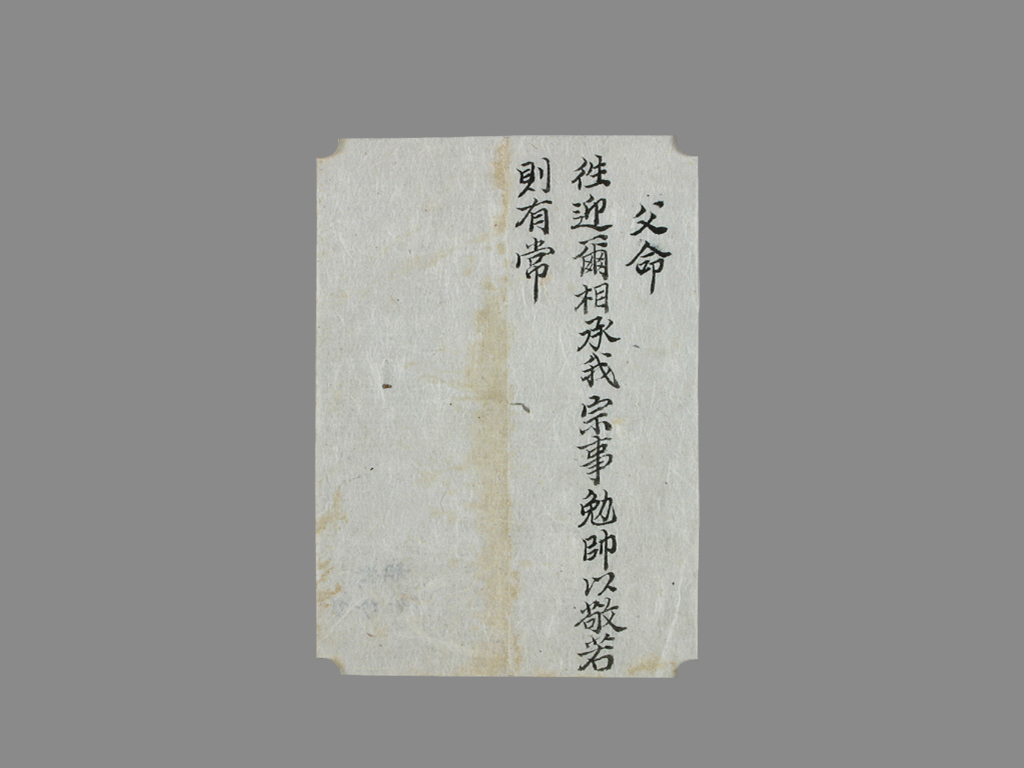 父命
徃迎爾相承我宗事勉帥以敬若
則有常